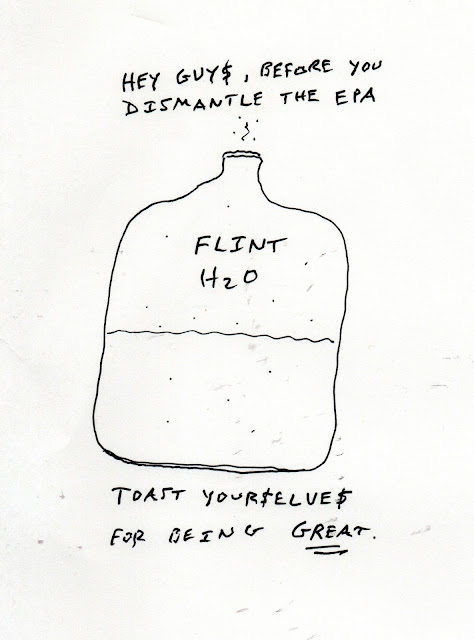 HEY GUY$, BEFORE YOU
DISMANTLE THE EPA
FLINT
H2O
TOAST YOUR$ELVE$
FOR BEING GREAT.